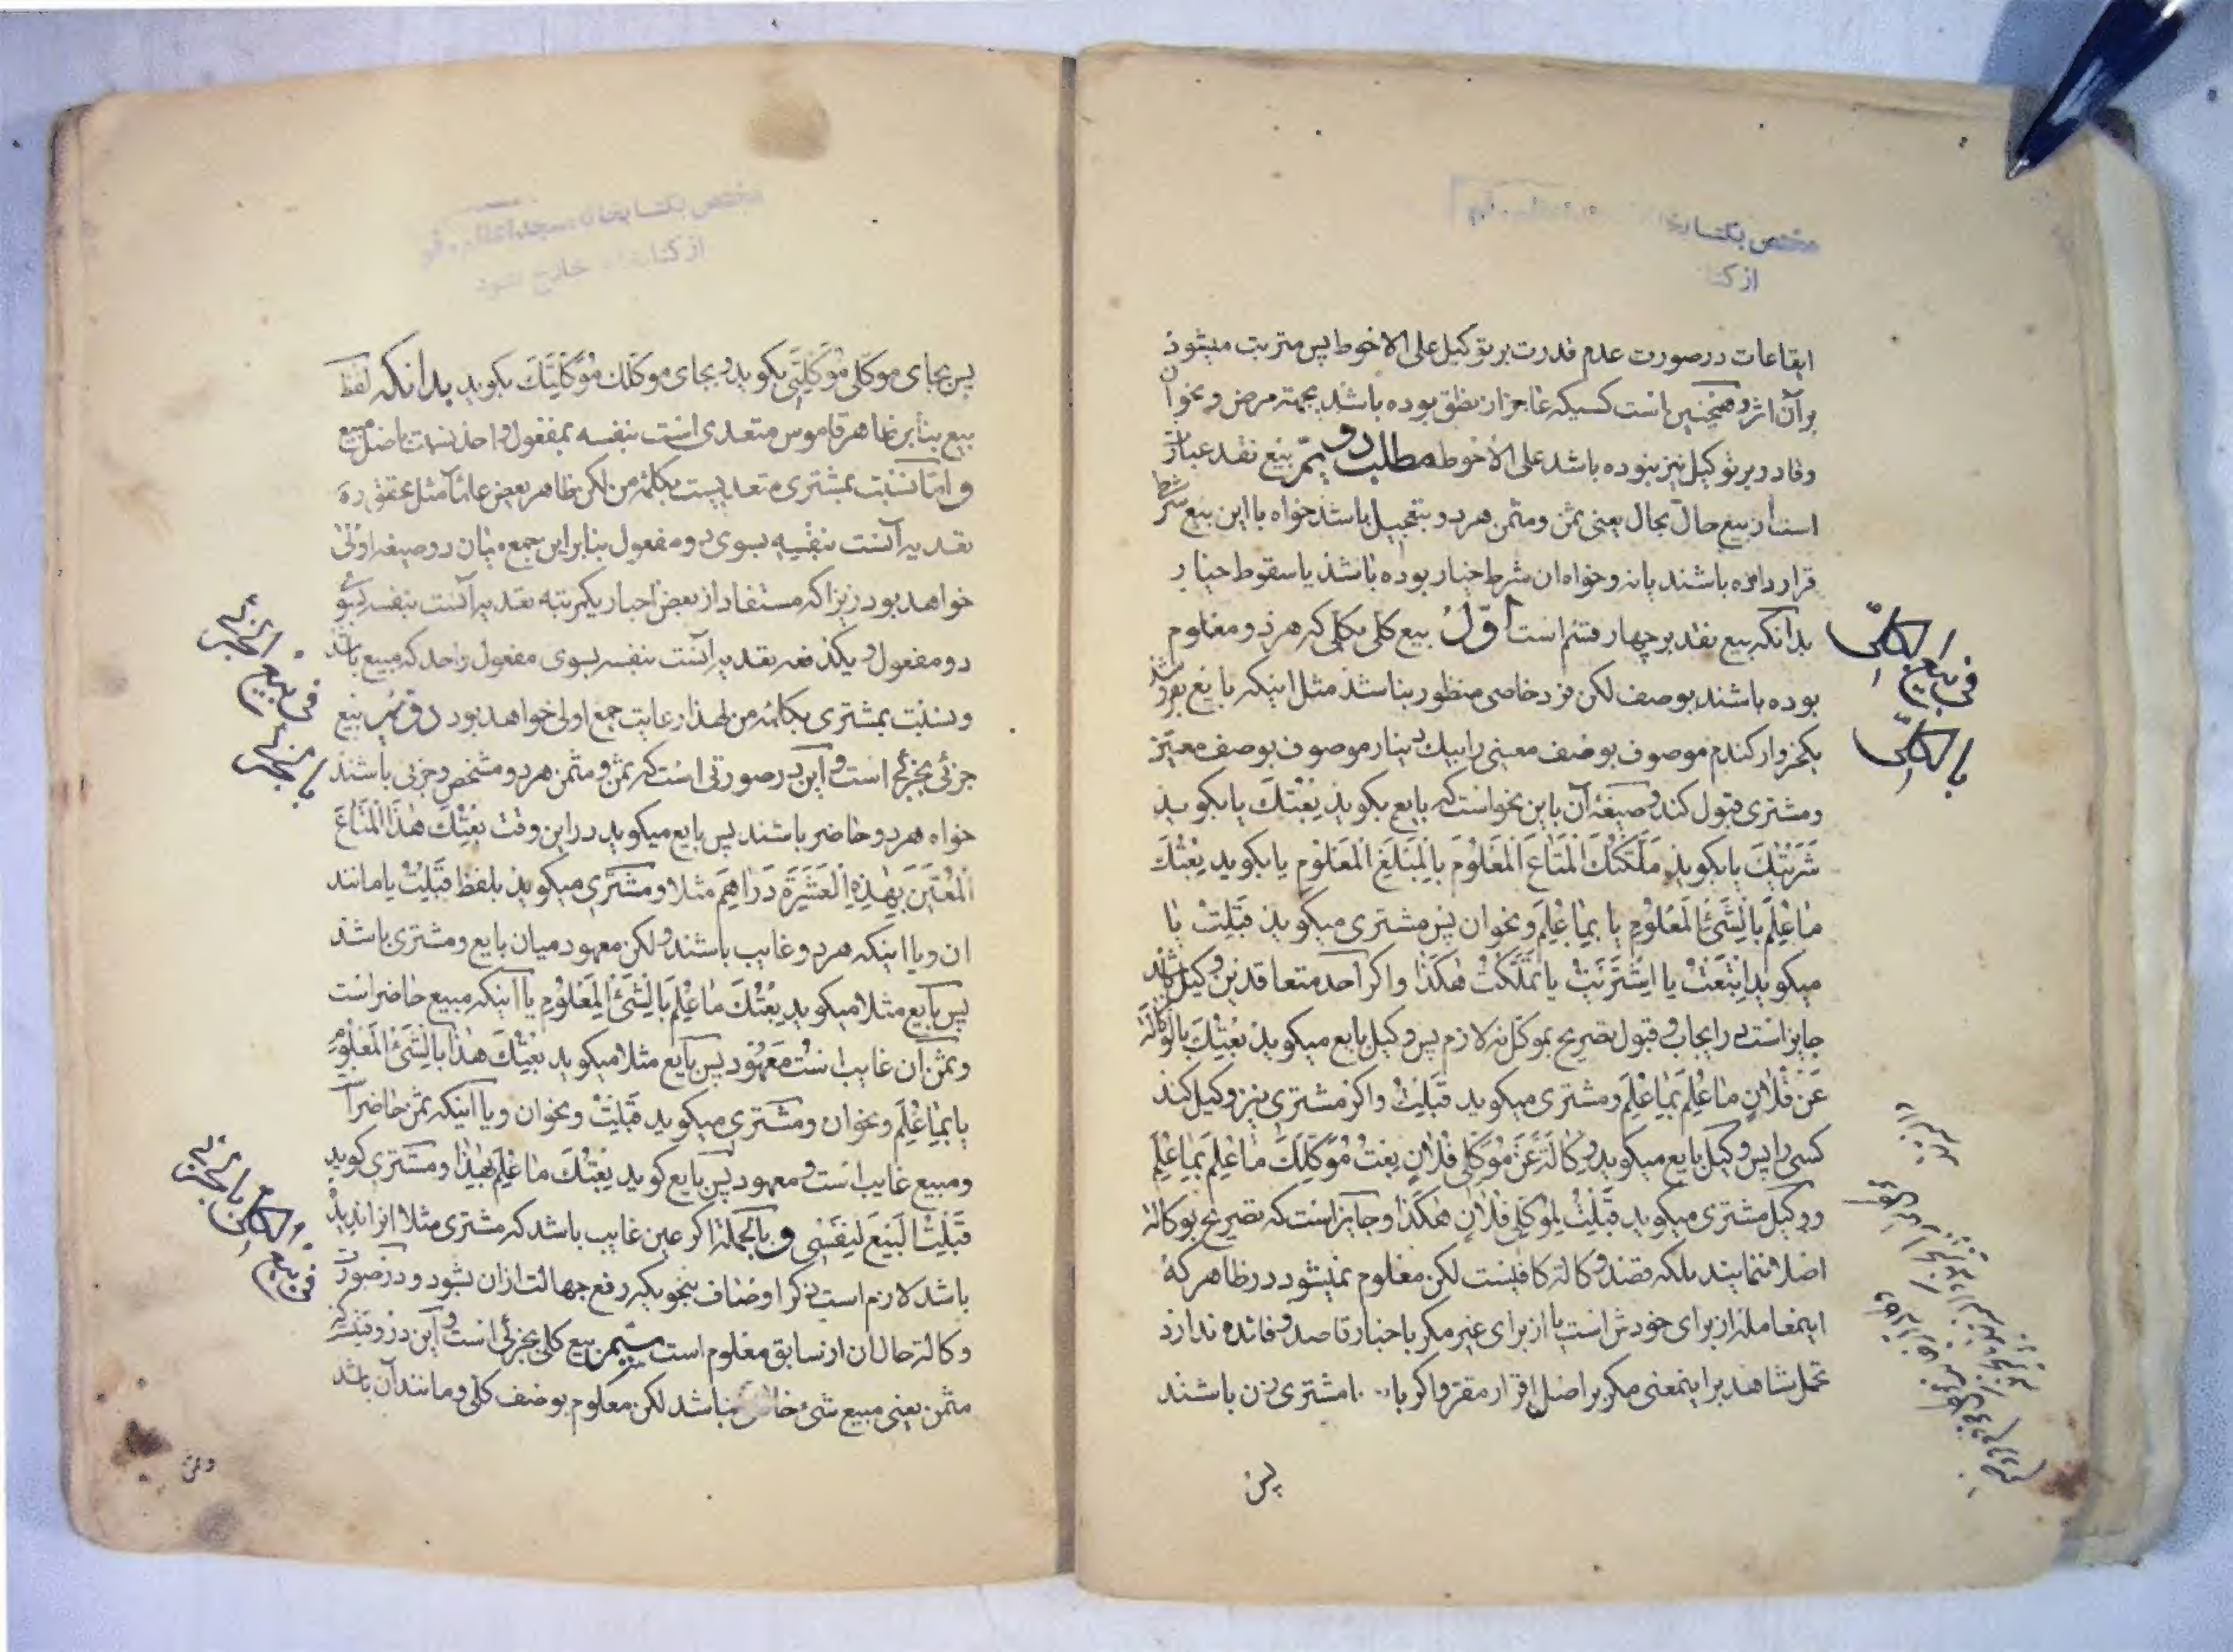 مختص بکتابخا
از کتا
ایقاعات در صورت عدم قدرت بر توکیل علی الاحوط پس مترتب میشود
بر آن اثر و همچنین است کسیکه عاجز از نطق بوده باشد بجهته مرض و نحو آن
و قادر بر توکیل نیز نبوده باشد علی الاحوط مطلب دویّم بیع نقد عبارت
است از بیع حالّ بحال یعنی ثمن و مثمن هر دو بتعجیل باشد خواه با این بیع شرط
قرار داده باشند یا نه و خواه ان شرط خیار بوده باشد یا سقوط خیار
بدانکه بیع نقد بر چهار قسم است اوّل بیع کلی بکلی که هر دو معلوم
بوده باشند بوصف لکن فرد خاصی منظور نباشد مثل اینکه بایع بفروشد
یکخروار کندم موصوف بوصف معینی را بیک دینار موصوف بوصف معیّن
و مشتری قبول کند و صیغهٔ آن باین نحو است که بایع بکوید بِعْتُكَ یا بکوید
شَرَیْتُكَ یا بکوید مَلَّکْتُكَ الْمَتاعَ الْمَعْلُومَ بِالْمَبْلَغِ الْمَعْلُومِ یا بکوید بِعْتُكَ
ما عُلِمَ بِالشَّیْءِ الْمَعْلُومِ یا بِما عُلِمَ و نحو ان پس مشتری میکوید قَبِلْتُ یا
میکوید اِبْتَعْتُ یا اِشْتَرَیْتُ یا تَمَلَّکْتُ هکَذا و اکر احد متعاقدین وکیل باشد
جایز است در ایجاب و قبول تصریح بموکل نه لازم پس وکیل بایع میکوید بِعْتُكَ بِالْوَکالَةِ
عَنْ فُلانٍ ما عُلِمَ بِما عُلِمَ و مشتری میکوید قَبِلْتُ و اکر مشتری نیز وکیل کند
کسی را پس وکیل بایع میکوید وِکالَةً عَنْ مُوَکِّلی فُلانٍ بِعْتُ مُوَکِّلَكَ ما عُلِمَ بِما عُلِمَ
و وکیل مشتری میکوید قَبِلْتُ لِمُوَکِّلی فُلانٍ هکَذا و جایز است که تصریح بوکالة
اصلا ننمایند بلکه قصد وکالة کافیست لکن معلوم نمیشود در ظاهر که
اینمعامله از برای خودش است یا از برای غیر مکر باخبار قاصد و فائده ندارد
تحمل شاهد بر اینمعنی مکر بر اصل اقرار مقر و اکر با مشتری زن باشند
پس
فی بیع الکلّی
بالکلّی
مختص بکتابخانه مسجد اعظم قم
از کتابخانه خارج نشود
پس بجای موکّلی مُوَکِّلَتی بکوید و بجای موکّلك مُوَکِّلَتَكَ بکوید بدانکه لفظ
بیع بنا بر ظاهر قاموس متعدی است بنفسه بمفعول واحد نسبت باصل مبیع
و امّا نسبت بمشتری متعدیست بکلمهٔ من لکن ظاهر بعض علما مثل محقق ره
تعدیه آنست بنفسه بسوی دو مفعول بنا بر این جمع میان دو صیغه اولی
خواهد بود زیرا که مستفاد از بعض اخبار یکمرتبه تعدیه آنست بنفسه بسوی
دو مفعول و یکدفعه تعدیه آنست بنفسه بسوی مفعول واحد که مبیع باشد
و نسبت بمشتری بکلمهٔ من لهذا رعایت جمع اولی خواهد بود دویّم بیع
جزئی بجزئی است و این در صورتی است که ثمن و مثمن هر دو مشخص و جزئی باشند
خواه هر دو حاضر باشند پس بایع میکوید در این وقت بِعْتُكَ هذَا الْمَتاعَ
الْمُعَیَّنَ بِهذِهِ الْعَشَرَةِ دَراهِمَ مثلا و مشتری میکوید بلفظ قَبِلْتُ یا مانند
ان و یا اینکه هر دو غایب باشند و لکن معهود میان بایع و مشتری باشد
پس بایع مثلا میکوید بِعْتُكَ ما عُلِمَ بِالشَّیْءِ الْمَعْلُومِ یا اینکه مبیع حاضر است
و ثمن آن غایب است مَعهُود پس بایع مثلا میکوید بِعْتُكَ هذا بِالشَّیْءِ الْمَعْلُومِ
یا بِما عُلِمَ و نحو ان و مشتری میکوید قَبِلْتُ و نحو ان و یا اینکه ثمن حاضر
و مبیع غایب است و معهود پس بایع کوید بِعْتُكَ ما عُلِمَ بِهذا و مشتری کوید
قَبِلْتُ الْبَیْعَ لِنَفْسی و بالجملة اکر عین غایب باشد که مشتری مثلا انرا ندیده
باشد لازم است ذکر اوصاف بنحویکه رفع جهالت از ان بشود و در صورت
وکالة حال ان از سابق معلوم است سیّم بیع کلی بجزئی است و این در وقتیست که
مثمن یعنی مبیع شیء خاص نباشد لکن معلوم بوصف کلی و مانند آن باشد
و ثمن
فی بیع الجزئی
بالجزئی
فی بیع الکلی بالجزئی